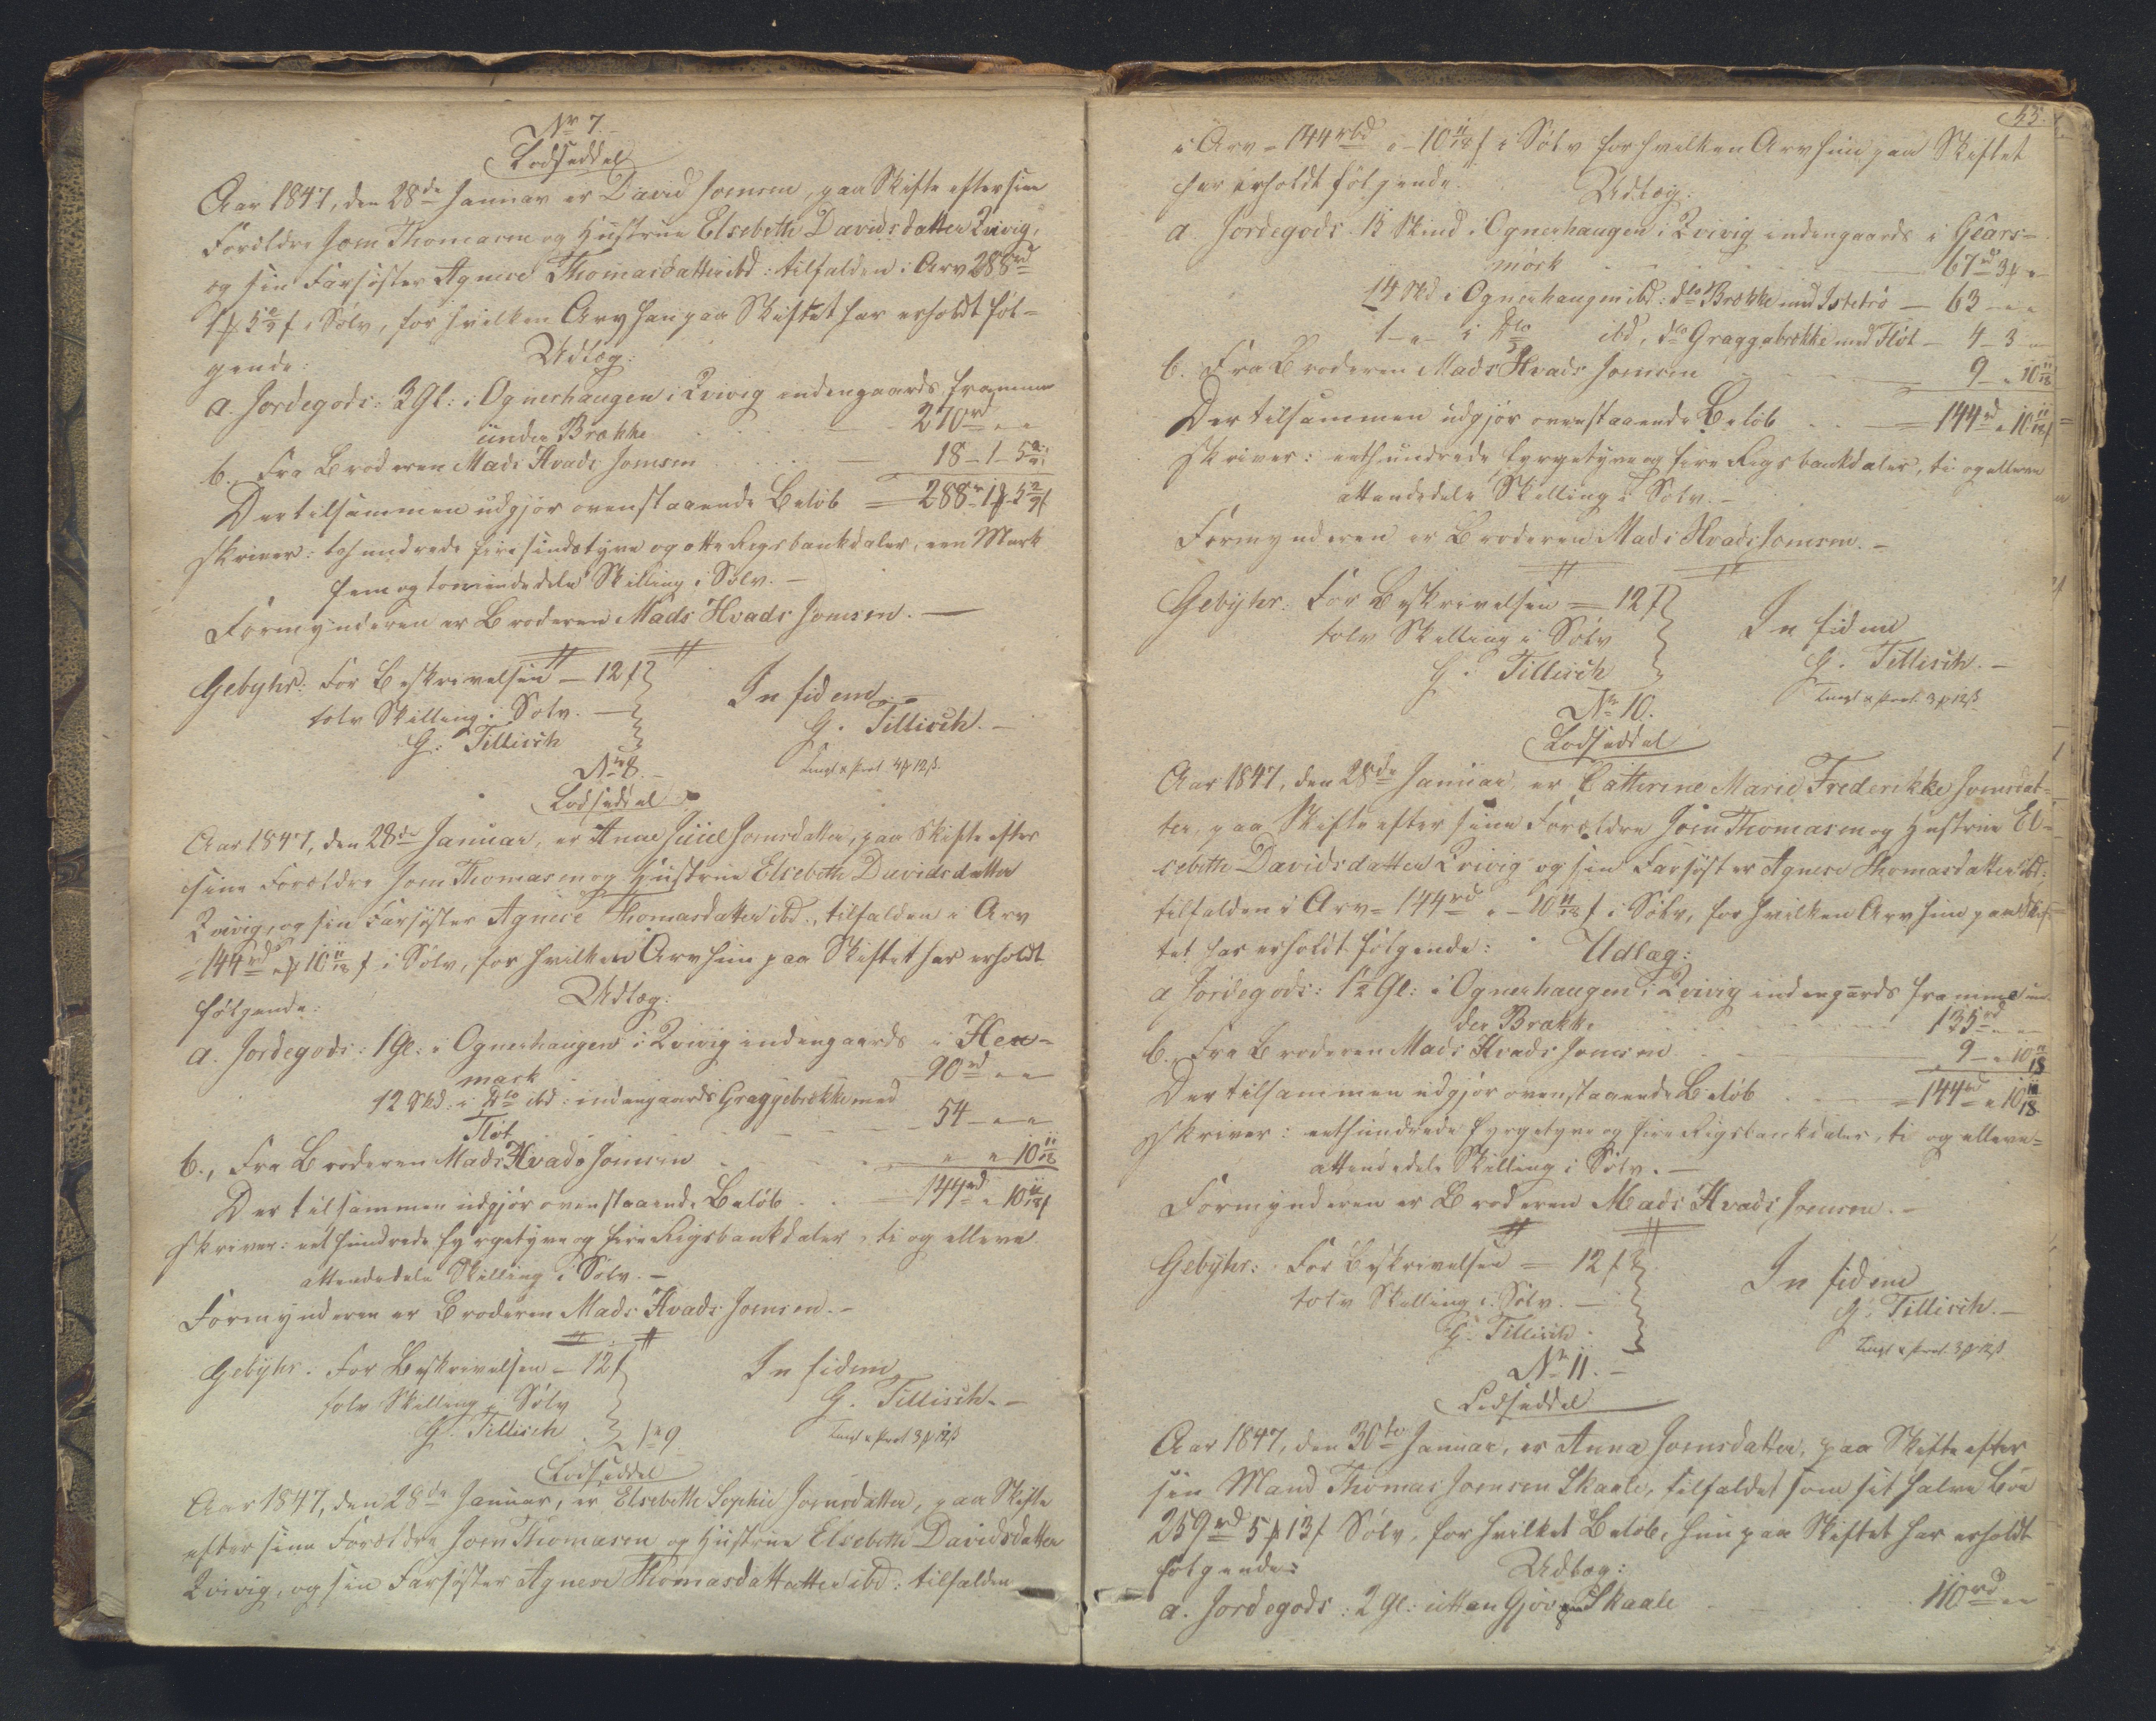 No 7.
Lodseddel
Aar 1847, den 28de Januar er David Joensen, paa Skifte efter sine
Forældre Joen Thomasen og Hustrue Elsebeth Davidsdatter Qvivig,
og sin Farsøster Agnese Thomasdatter ibd: tilfalden i Arv 288rd
1 5 2/9 i Sølv, for hvilken Arv han paa Skiftet har erholdt føl-
gende:
Udlæg:
a. Jordegods: 3 Gl: i Ognerhaugen i Qvivig indengaards framme
under Brække 270rd
b. Fra Broderen Mads Hvads Joensen 18 - 1 - 5 2/9
Der tilsammen udgjør ovenstaaende Beløb = 288 1 5 2/9
skriver: tohundrede firesindstyve og otte Rigsbankdaler, een Mark
fem og toniendedele Skilling i Sølv. -
Formynderen er Broderen Mads Hvads Joensen. -
Gebyhr: For Beskrivelsen - 12
tolv Skilling i Sølv. -
G. Tillisch
In fidem
G. Tillisch. -
No 8. -
Lodseddel
Aar 1847, den 28de Januar, er Anne Joensdatter, paa Skifte efter
sine Forældre Joen Thomasen og Hustrue Elsebeth Davidsdatter
Qvivig, og sin Farsøster Agnese Thomasdatter ibd., tilfalden i Arv
= 144rd 10 11/18 i Sølv, for hvilken Arv hun paa Skiftet har erholdt
følgende:
Udlæg:
a. Jordegods: 1 Gl: i Ognerhaugen i Qvivig indengaards i Heu-
mark 90rd
12 Skd: i Dto ibd: indengaards Graggebrække med
Fløt 54 - -
b., Fra Broderen Mads Hvads Joensen 10 11/18
Der tilsammen udgjør ovenstaaende Beløb = 144rd 10 11/18
skriver: eet hundrede fyrgetyve og fire Rigsbankdaler, ti og elleve
attendedele Skilling i Sølv. -
Formynderen er Broderen Mads Hvads Joensen. -
Gebyhr. For Beskrivelsen - 12
tolv Skilling i Sølv
G. Tillisch
In fidem
G. Tillisch. -
9
Lodseddel
Aar 1847, den 28de Januar, er Elsebeth Sophie Joensdatter, paa Skifte
efter sine Forældre Joen Thomasen og Hustrue Elsebeth Davidsdatter
Qvivig, og sin Farsøster Agnese Thomasdattatter ibd: tilfalden
55.
i Arv = 144rbd 10 11/18 i Sølv for hvilken Arv hun paa Skiftet
har erholdt følgende.
Udlæg:
a. Jordegods. 15 Skind i Ognerhaugen i Qvivig indengaards i Gears-
mørk 67rd 3
14 Skd i Ognerhaugen ibd: dto Brække med Istetrø - 63 - -
1 - - i Dto ibd, dto Graggabrekke med Fløt - 4 - 3
b. Fra Broderen Mads Hvads Joensen 9 - 10 11/18
Der tilsammen udgjør ovenstaaende Beløb = 144rd 10 11/18
skriver: eethundrede fyrgetyve og fire Rigsbankdaler, ti og elleve
attendedele Skilling i Sølv. -
Formynderen er Broderen Mads Hvads Joensen. -
Gebyhr. For Beskrivelsen = 12
tolv Skilling i Sølv
G. Tillisch
In fidem
G. Tillisch. -
No 10.
Lodseddel
Aar 1847, den 28de Januar, er Catherine Marie Frederikke Joensdat-
ter, paa Skifte efter sine Forældre Joen Thomasen og Hustrue El-
sebeth Davidsdatter Qvivig og sin Farsøster Agnese Thomasdatter ibd:
tilfalden i Arv = 144rd - 10 11/18 i Sølv, for hvilken Arv hun paa Skif-
tet har erholdt følgende:
Udlæg:
a Jordegods: 1 1/2 Gl: i Ognerhaugen i Qvivig indengards framme un-
der Brække 135rd
b. Fra Broderen Mads Hvads Joensen 9 - 10 11/18
Der tilsammen udgjør ovenstaaende Beløb = 144rd 10 11/18
skriver: eethundrede fyrgetyve og fire Rigsbankdaler, ti og elleve-
attendedele Skilling i Sølv. -
Formynderen er Broderen Mads Hvads Joensen. -
Gebyhr: For Beskrivelsen = 12
tolv Skilling i Sølv. -
G. Tillisch.
In fidem
G. Tillisch. -
No 11. -
Lodseddel
Aar 1847, den 30te Januar, er Anna Joensdatter, paa Skifte efter
sin Mand Thomas Joensen Skaale, tilfaldet som sit halve Boe
259rd 5 13 Sølv, for hvilket Beløb, hun paa Skiftet har erholdt
følgende:
Udlæg:
a. Jordegods: 2 Gl: uttan Gjov Skaale 110rd